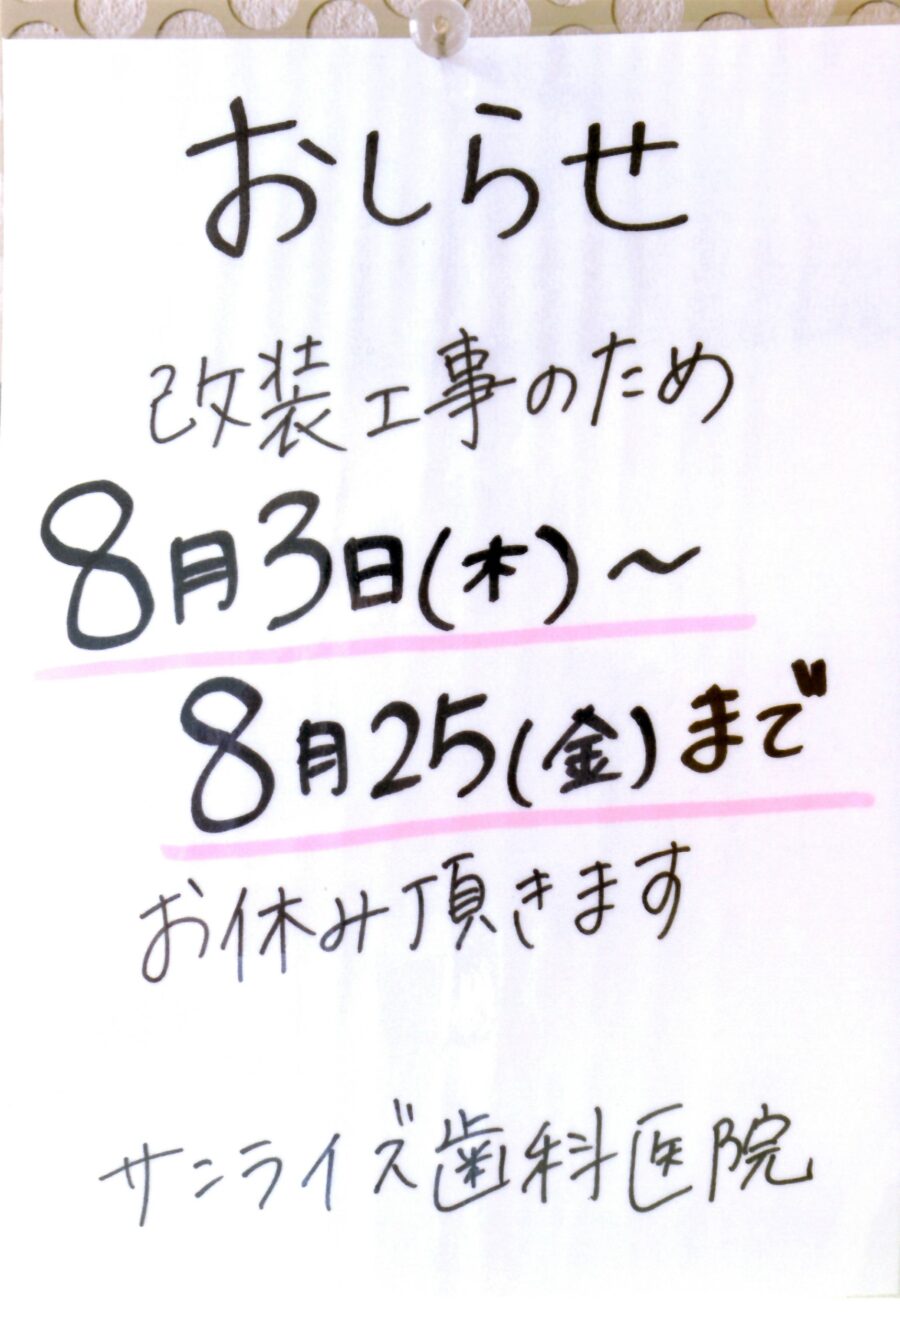 おしらせ
改装工事のため
8月3日(木)～
8月25(金)まで
お休み頂きます
サンライズ歯科医院